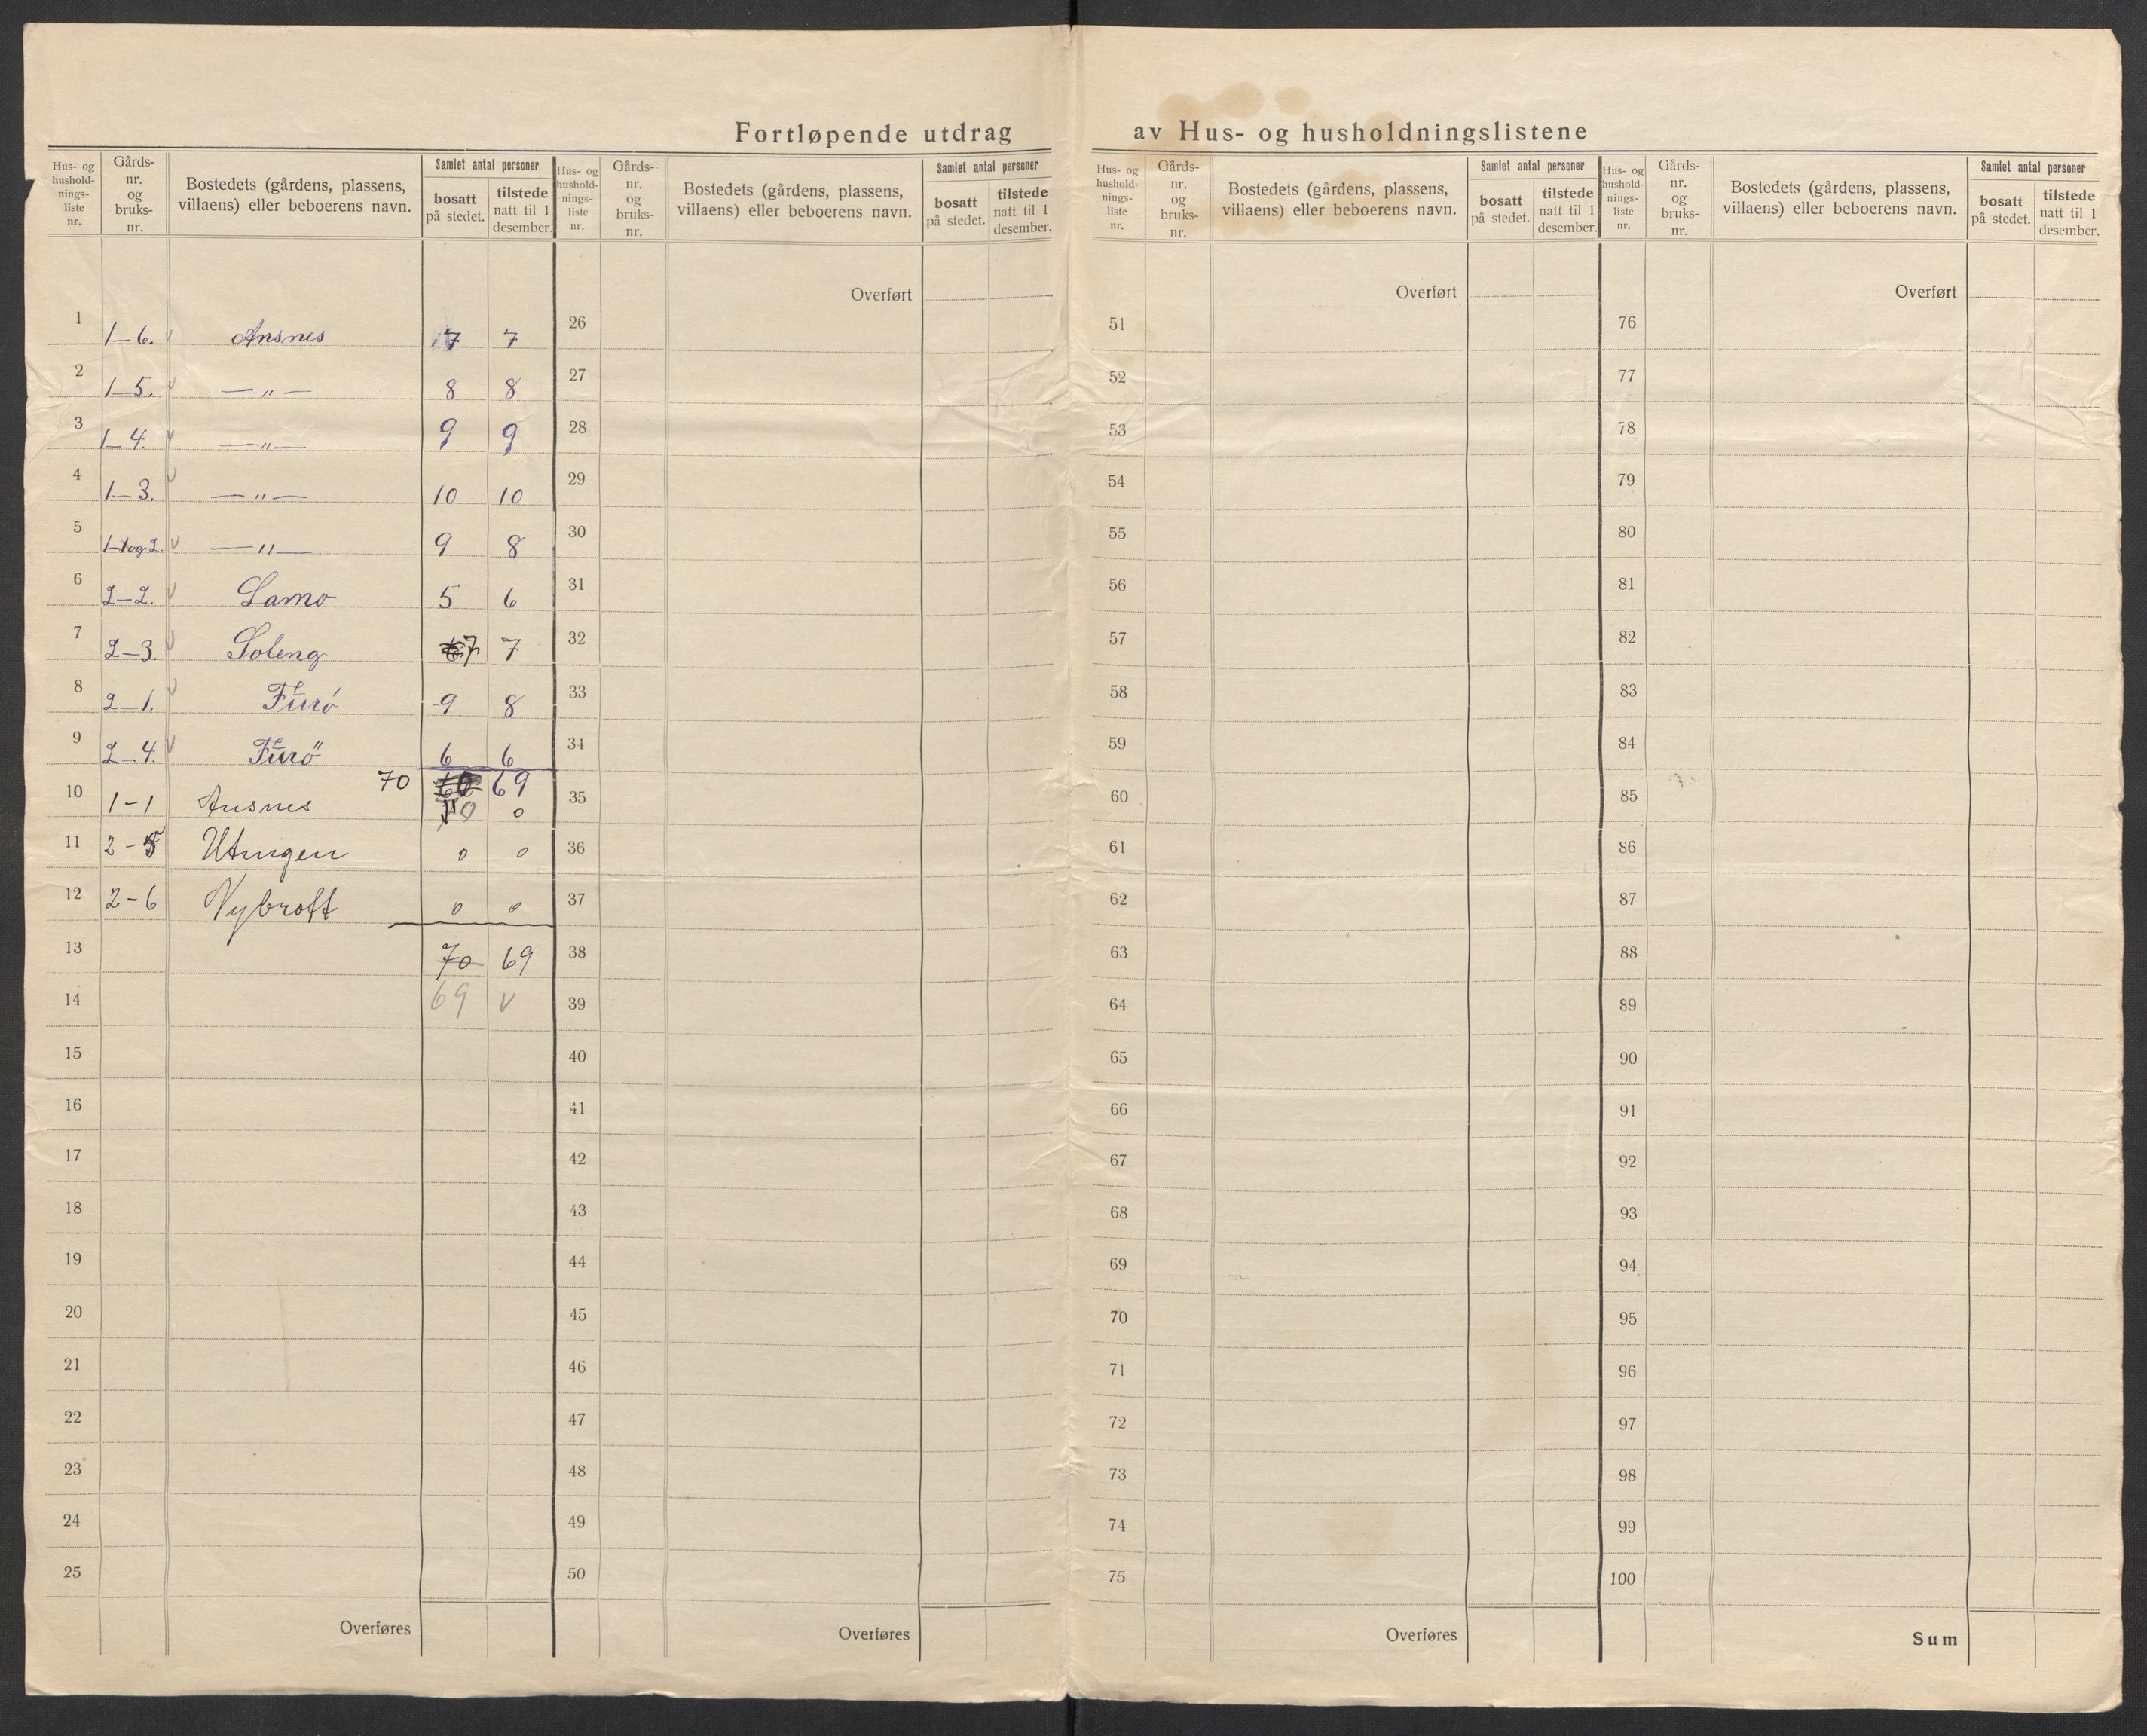 Fortløpende utdrag av Hus- og husholdningslistene
Hus- og hushold-nings-liste nr. | Gårds-nr. og bruks-nr. | Bostedets (gårdens, plassens, villaens) eller beboerens navn. | Samlet antal personer | bosatt på stedet. | tilstede natt til 1 desember.
Hus- og hushold-nings-liste nr. | Gårds-nr. og bruks-nr. | Bostedets (gårdens, plassens, villaens) eller beboerens navn. | Samlet antal personer | bosatt på stedet. | tilstede natt til 1 desember.
Hus- og hushold-nings-liste nr. | Gårds-nr. og bruks-nr. | Bostedets (gårdens, plassens, villaens) eller beboerens navn. | Samlet antal personer | bosatt på stedet. | tilstede natt til 1 desember.
Hus- og hushold-nings-liste nr. | Gårds-nr. og bruks-nr. | Bostedets (gårdens, plassens, villaens) eller beboerens navn. | Samlet antal personer | bosatt på stedet. | tilstede natt til 1 desember.
1 1–6. v Ansnes 7 7
2 1–5. v — „ — 8 8
3 1–4. v — „ — 9 9
4 1–3. v — „ — 10 10
5 1–1og2. v — „ — 9 8
6 2–2. v Lamo 5 6
7 2–3. v Soleng 7 7
8 2–1. v Furö 9 8
9 2–4. v Furö 6 6
70 69
10 1–1 Ansnes 0 0
11 2–5 Utingen 0 0
12 2–6 Nybrott 0 0
13 70 69
14 69 v
15
16
17
18
19
20
21
22
23
24
25
Overføres
Overført
26
27
28
29
30
31
32
33
34
35
36
37
38
39
40
41
42
43
44
45
46
47
48
49
50
Overføres
Overført
51
52
53
54
55
56
57
58
59
60
61
62
63
64
65
66
67
68
69
70
71
72
73
74
75
Overføres
Overført
76
77
78
79
80
81
82
83
84
85
86
87
88
89
90
91
92
93
94
95
96
97
98
99
100
Sum